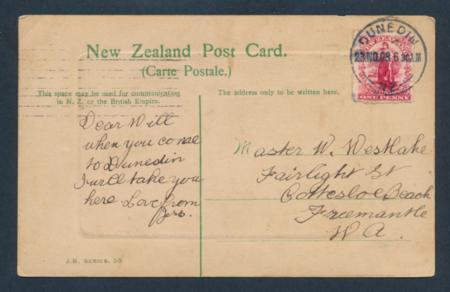 New Zealand Post Card.
(Carte Postale.)
This space may be used for communication
in N. Z. or the British Empire.
The address only to be written here.
DUNEDIN
ONE PENNY
Dear Will
when you come
to Dunedin
I will take you
here Love from
Master W. Westlake
Fairlight St
Cottesloe Beach
Freemantle
W A.
J.H. SERIES. 50